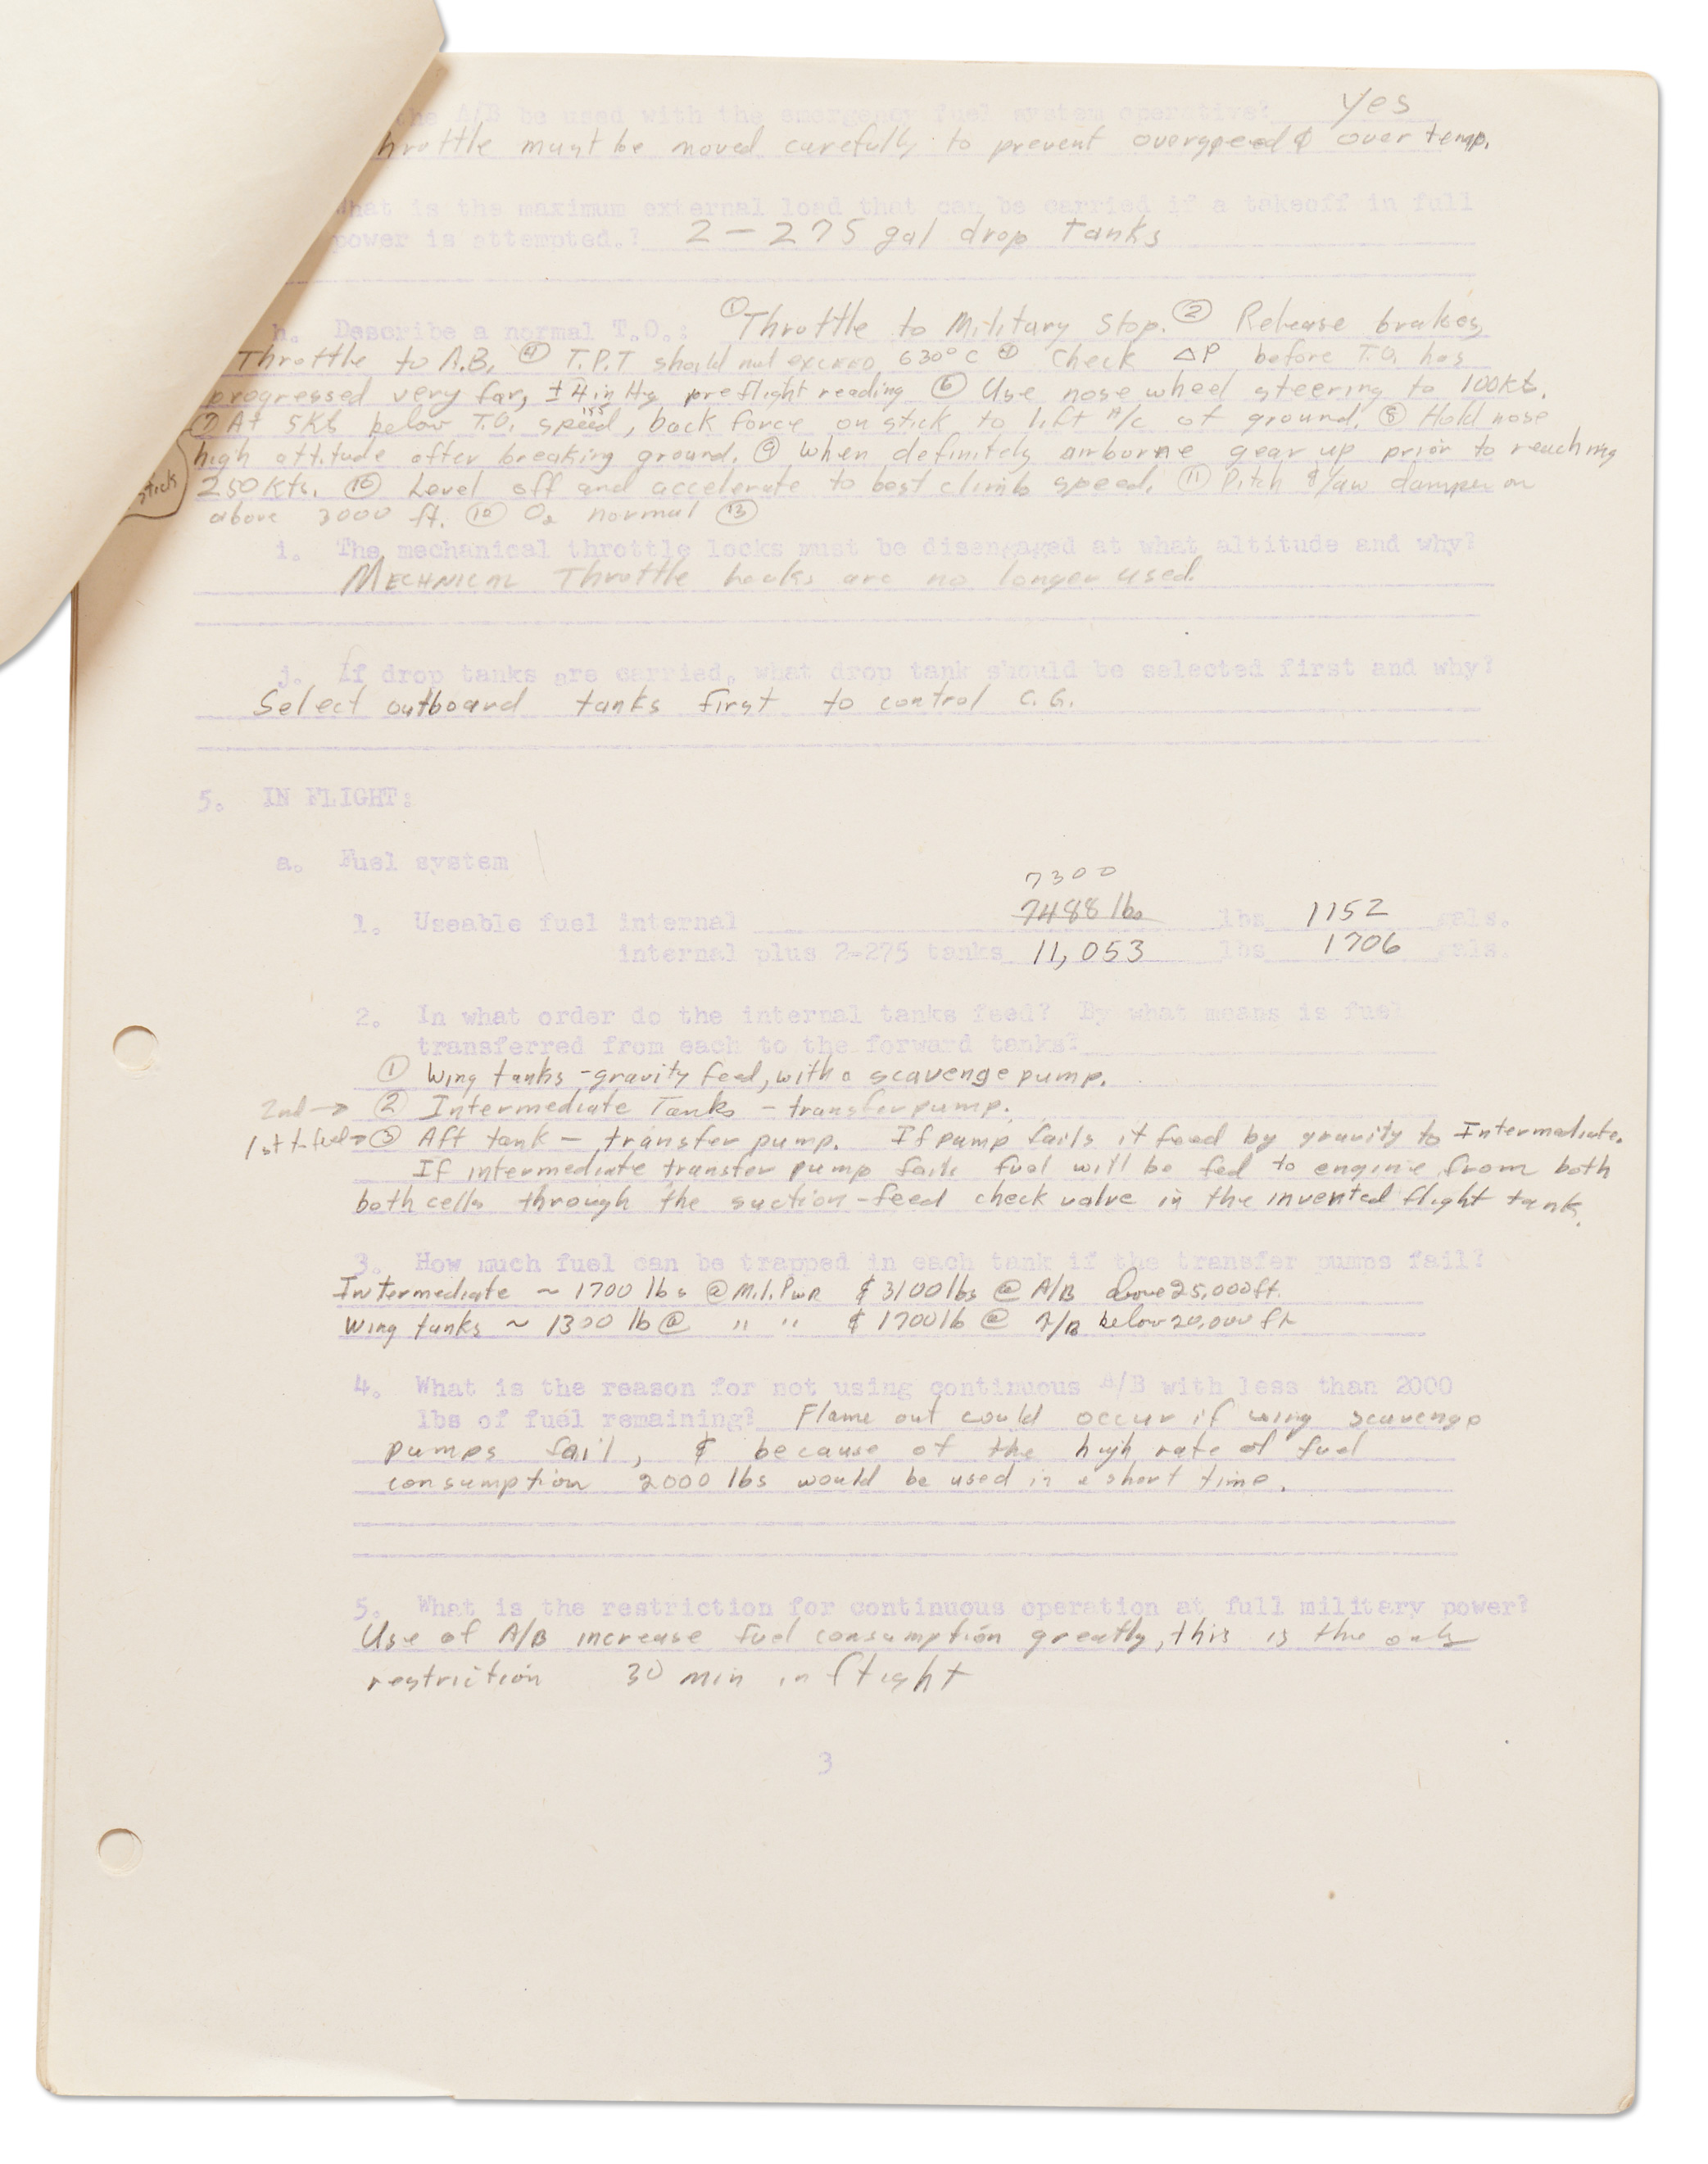 the A/B be used with the emergency fuel system operative? yes
hrottle must be moved carefully to prevent overspeed & over temp.
What is the maximum external load that can be carried if a takeoff in full
power is attempted.? 2-275 gal drop tanks
h. Describe a normal T.O.: ① Throttle to Military Stop. ② Release brakes,
Throttle to A.B. ④ T.P.T should not exceed 630°C ④ Check ΔP before T.O. has
progressed very far, ±4 in Hg preflight reading ⑥ Use nose wheel steering to 100kts.
⑦ At 5Kts below T.O. speed, 155 back force on stick to lift A/c of ground. ⑧ Hold nose
high attitude after breaking ground. ⑨ When definitely airborne gear up prior to reaching
stick 250 Kts. ⑩ Level off and accelerate to best climb speed. ⑪ Pitch & Yaw damper on
above 3000 ft. ⑩ O2 normal ⑬
i. The mechanical throttle locks must be disengaged at what altitude and why?
MECHNICAL Throttle are no longer used.
j. If drop tanks are carried, what drop tank should be selected first and why?
Select outboard tanks first to control C.G.
5. IN FLIGHT:
a. Fuel system
7300
1. Useable fuel internal 7488 lbs lbs 1152 gals.
internal plus 2-275 tanks 11,053 lbs 1706 gals.
2. In what order do the internal tanks feed? By what means is fuel
transferred from each to the forward tanks?
① Wing tanks - gravity feed, with a scavenge pump.
2nd → ② Intermediate Tanks - transfer pump.
1st → ③ Aft tank - transfer pump. If pump fails it feed by gravity to Intermediate.
If intermediate transfer pump fails fuel will be fed to engine from both
both cells through the suction-feed check valve in the invented flight tank.
3. How much fuel can be trapped in each tank if the transfer pumps fail?
Intermediate ~ 1700 lbs @ Mil. PWR & 3100 lbs @ A/B above 25,000 ft.
Wing tanks ~ 1300 lb @ " " & 1700 lb @ A/B below 20,000 ft
4. What is the reason for not using continuous A/B with less than 2000
lbs of fuel remaining? Flame out could occur if wing scavenge
pumps fail, & because of the high rate of fuel
consumption 2000 lbs would be used in a short time.
5. What is the restriction for continuous operation at full military power?
Use of A/B increase fuel consumption greatly, this is the only
restriction 30 min in flight
3